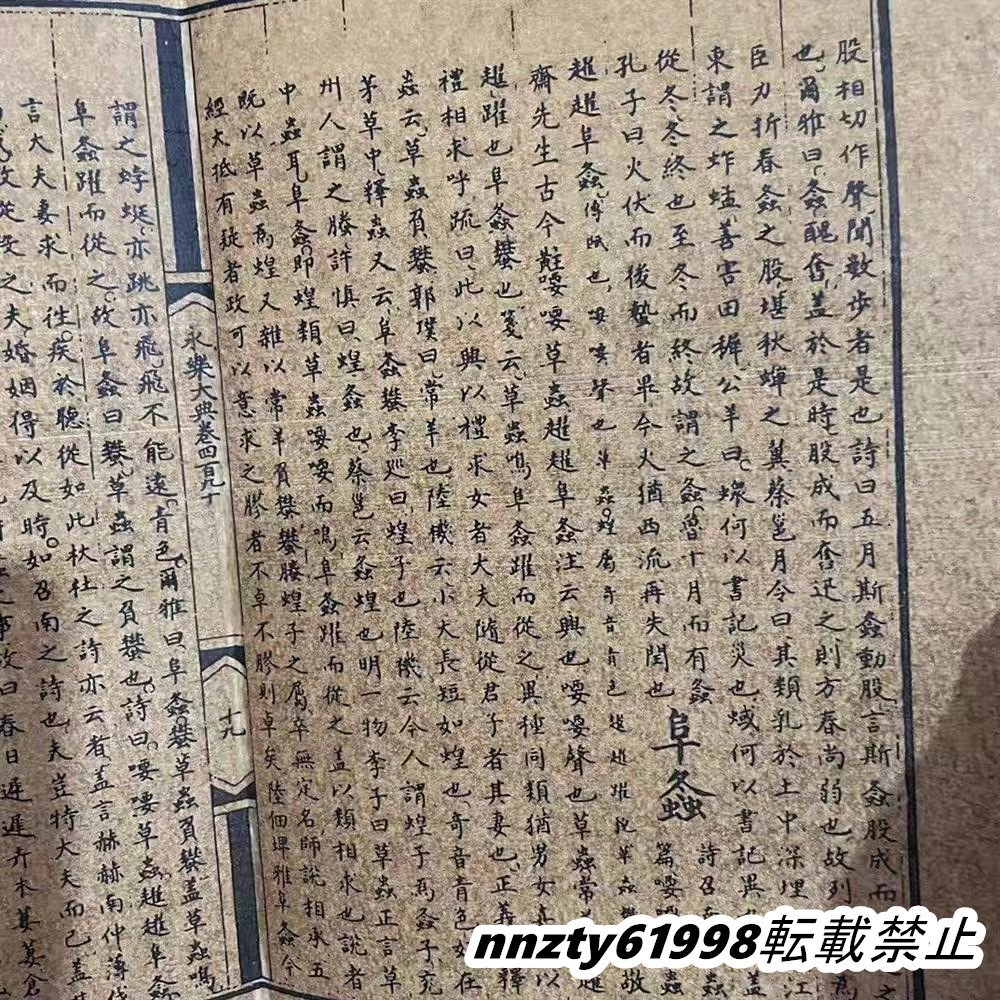 股相切作聲聞數步者是也詩曰五月斯螽動股言斯螽股成而
也爾雅曰螽醜奮蓋於是時股成而奮迅之則方春尚弱也故列
臣力折春螽之股堪秋蟬之翼蔡邕月令曰其類乳於土中深埋
東謂之蚱蜢善害田穉公羊曰蝝何以書記災也蜮何以書記異
從冬冬終也至冬而終故謂之螽魯十月而有螽
孔子曰火伏而後蟄者畢今火猶西流再失閏也
阜螽
詩召
篇喓
趯趯阜螽
齋先生古今
喓喓草蟲趯趯阜螽注云興也喓喓聲也草蟲常
趯躍也阜螽蠜也箋云草蟲鳴阜螽躍而從之異種同類猶男女
禮相求呼疏曰此以興以禮求女者大夫隨從君子者其妻也正義
蟲云草蟲負蠜郭璞曰常羊也陸機云小大長短如蝗也奇音青色好在
茅草中釋蟲又云阜螽蠜李巡曰蝗子也陸機云今人謂蝗子為螽子兗
州人謂之螣許慎曰蝗螽也蔡邕云螽蝗也明一物李子曰草蟲正言草
中蟲耳阜螽即蝗類草蟲喓喓而鳴阜螽躍而從之蓋以類相求也說者
既以草蟲為蝗又雜以常羊負蠜蠜螣蝗子之屬卒無定名師說相承五
經大抵有疑者政可以意求之膠者不卓不膠則卓矣陸佃埤雅阜螽今
永樂大典卷四百九十
十九
謂之蜉蜒亦跳亦飛飛不能遠青色爾雅曰阜螽蠜草蟲負蠜蓋草蟲鳴
阜螽躍而從之故阜螽曰蠜草蟲謂之負蠜也詩曰喓喓草蟲趯趯阜螽
言大夫妻求而往疾於聽從如此杕杜之詩亦云者蓋言赫赫南仲薄伐
之夫婚姻得以及時如召南之詩也夫豈特大夫而已蓋
故曰春日遲遲卉木萋萋倉
nnzty61998転載禁止